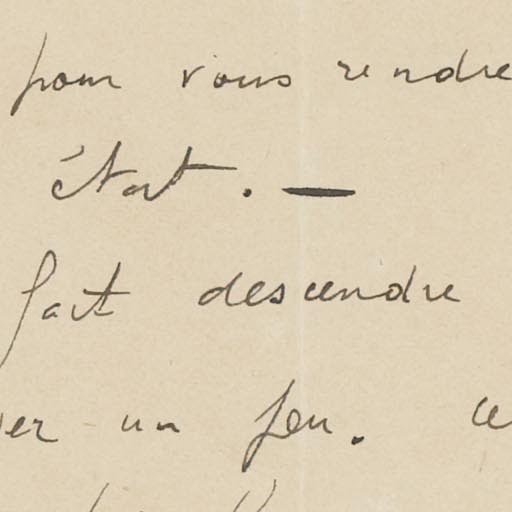 pour vous rendre
état. —
fait descendre
un feu. ce